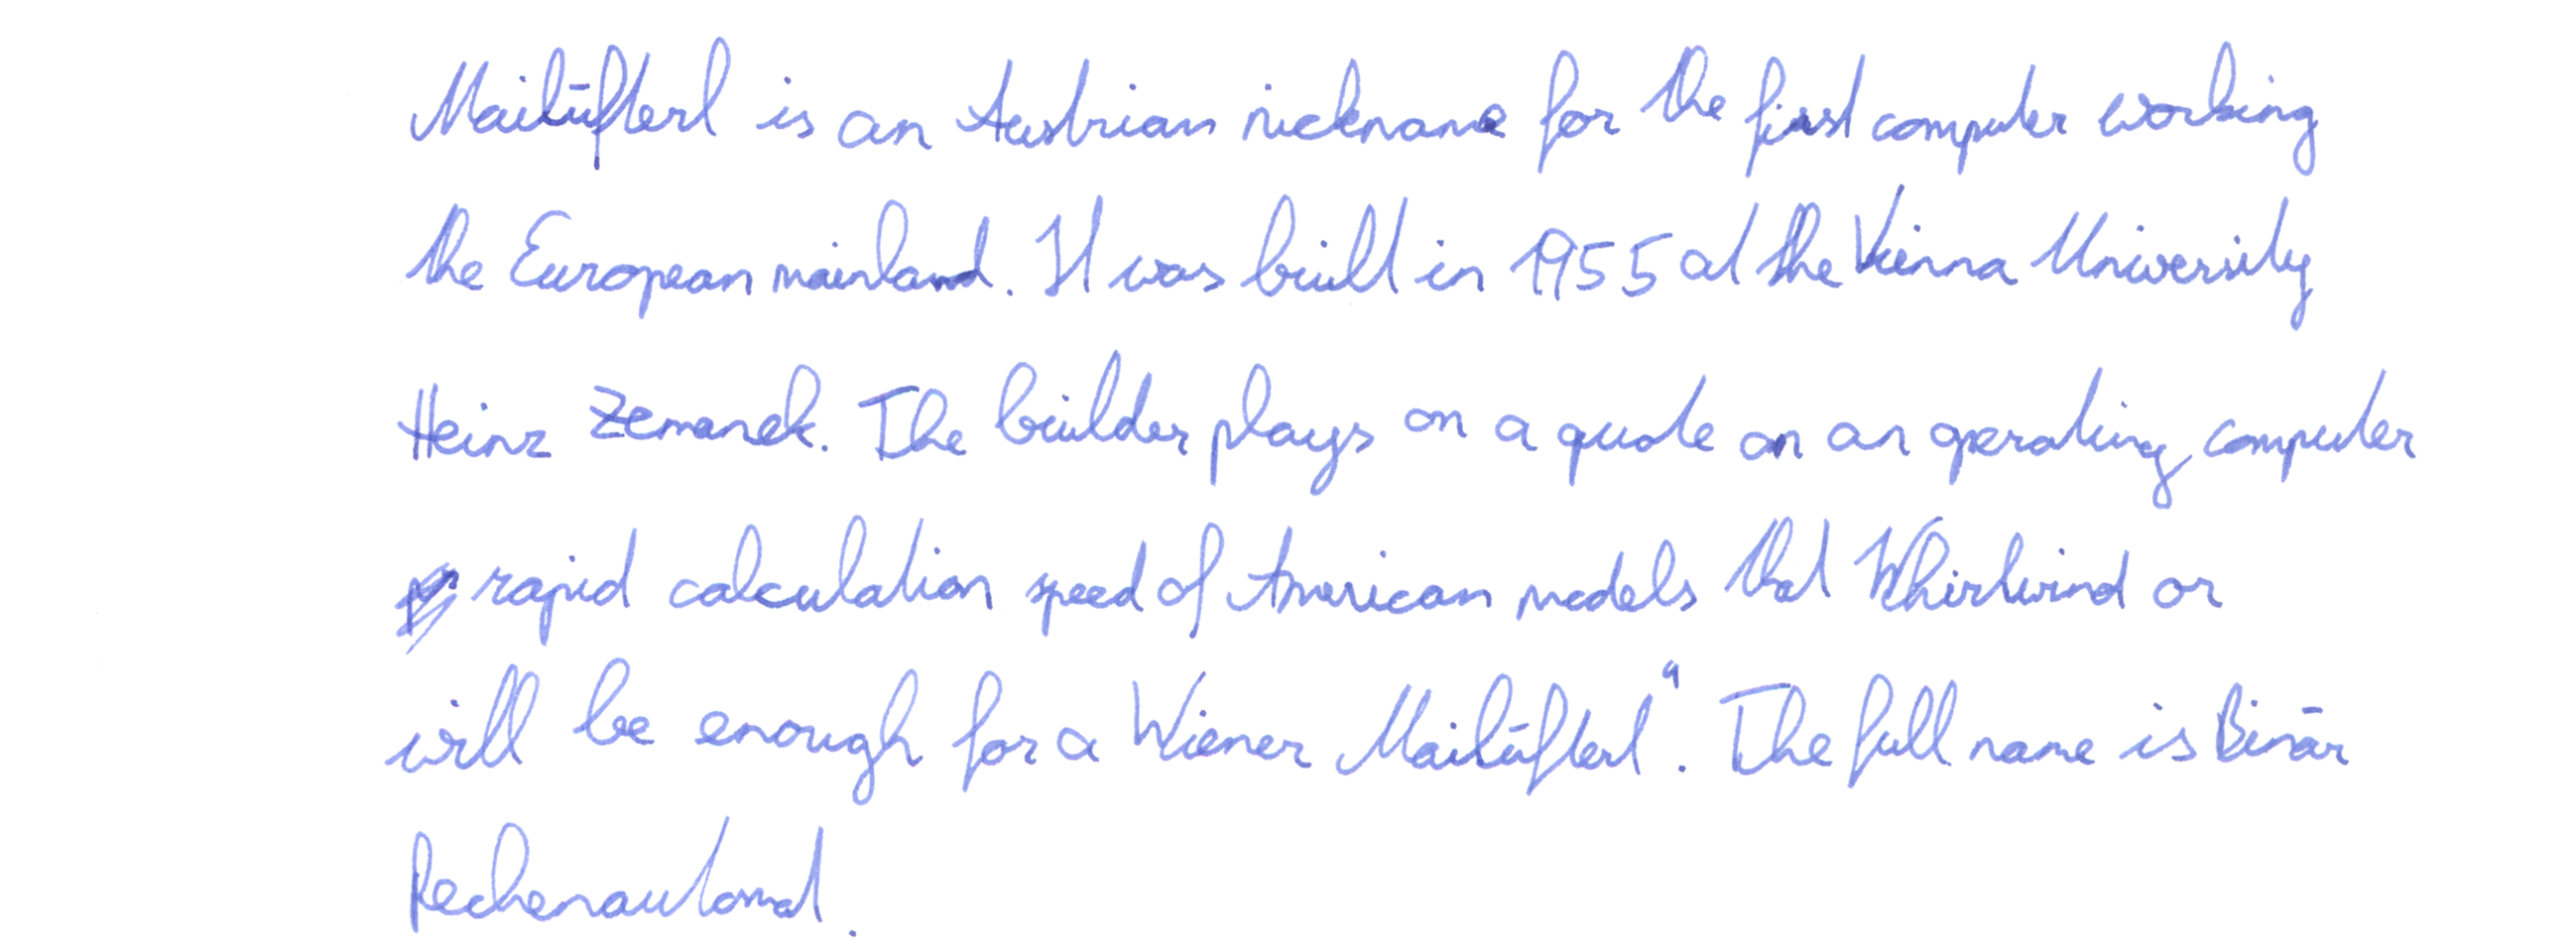 Mailüfterl is an Austrian nickname for the first computer working
the European mainland. It was built in 1955 at the Vienna University
Heinz Zemanek. The builder plays on a quote on an operating computer
rapid calculation speed of American models that Whirlwind or
will be enough for a Wiener Mailüfterl". The full name is Binär
Rechenautomat.